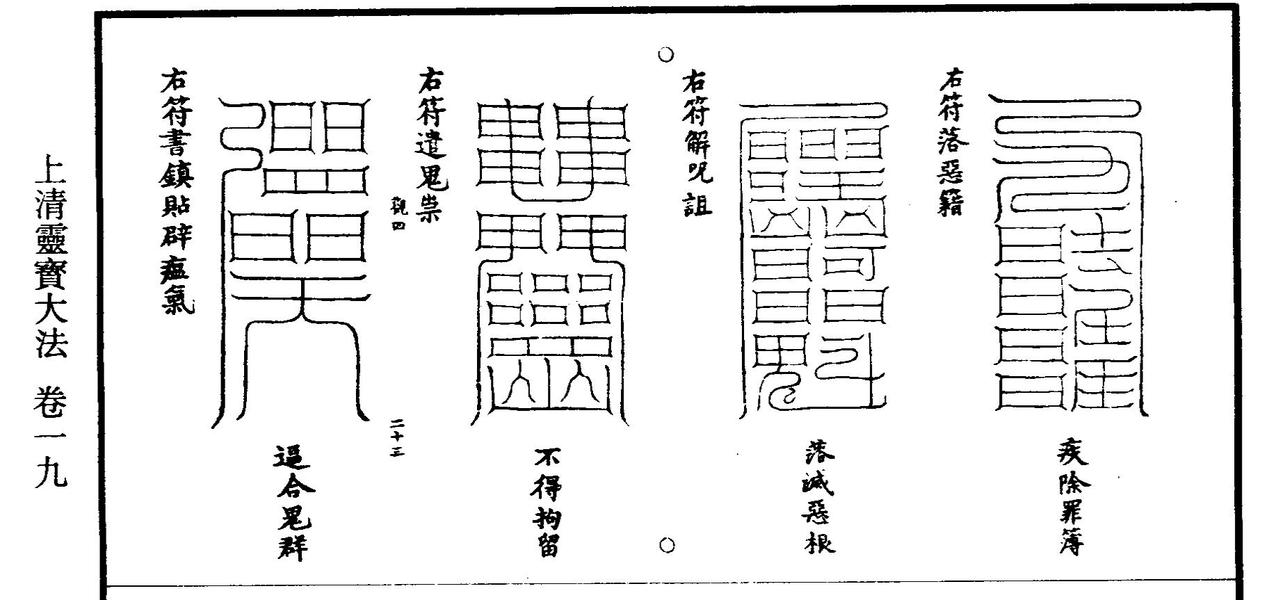 疾除罪簿
右符落惡籍
落滅惡根
右符解呪詛
不得拘留
右符遣鬼祟
觀四
二十三
逼合鬼群
右符書鎮貼辟瘟氣
上清靈寶大法 卷一九